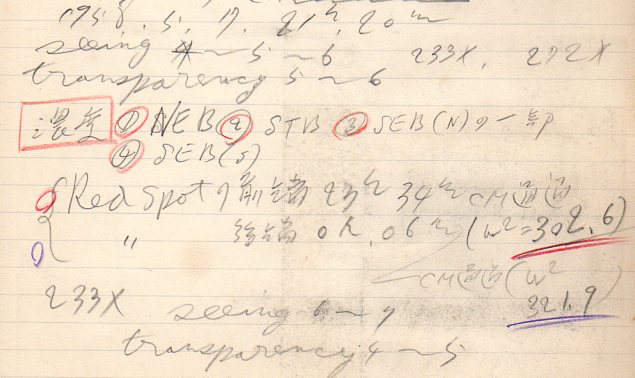 1958. 5. 17. 21h. 20m
seeing 4～5～6 233X, 292X
transparency 5～6
濃度 ① NEB ② STB ③ SEB(N)の一部
④ SEB(S)
Red Spotの前端 23h 34m CM通過
(ω²=302.6)
〃 後端 0h. 06m
CM通過(ω²
321.9)
233X seeing 6～7
transparency 4～5